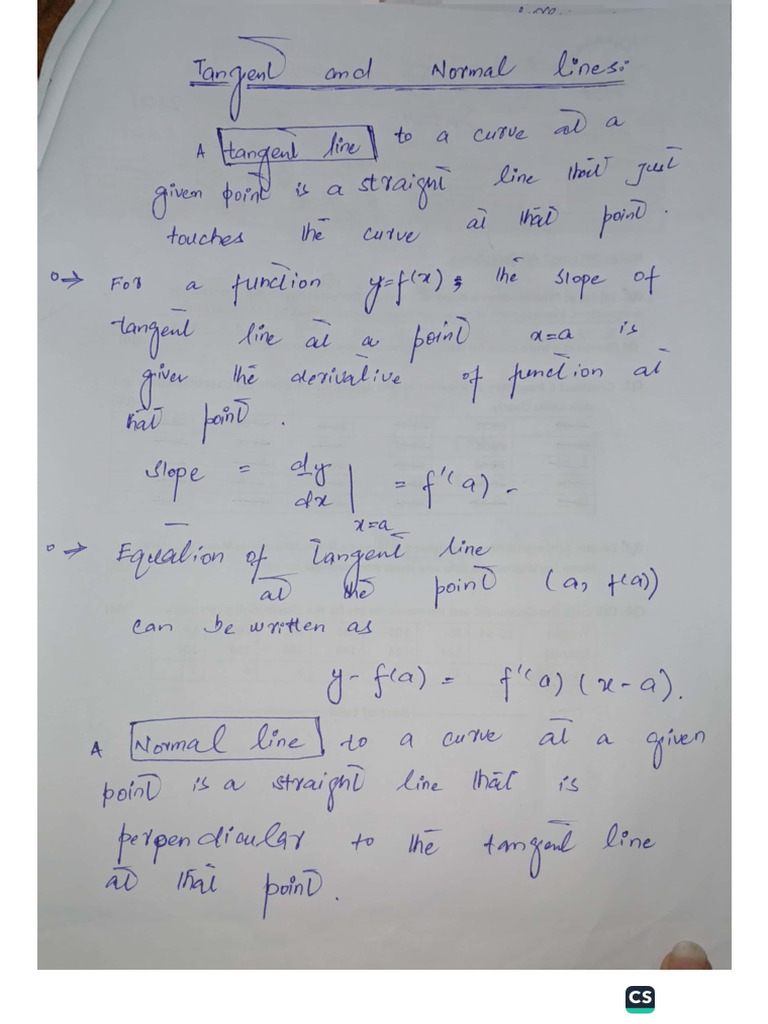 Tangent and Normal lines:
A tangent line to a curve at a
given point is a straight line that just
touches the curve at that point.
→ For a function y=f(x), the slope of
tangent line at a point x=a is
given the derivative of function at
that point.
slope = dy/dx | x=a = f'(a) -
→ Equation of Tangent line
at the point (a, f(a))
can be written as
y - f(a) = f'(a) (x - a).
A Normal line to a curve at a given
point is a straight line that is
perpendicular to the tangent line
at that point.
CS